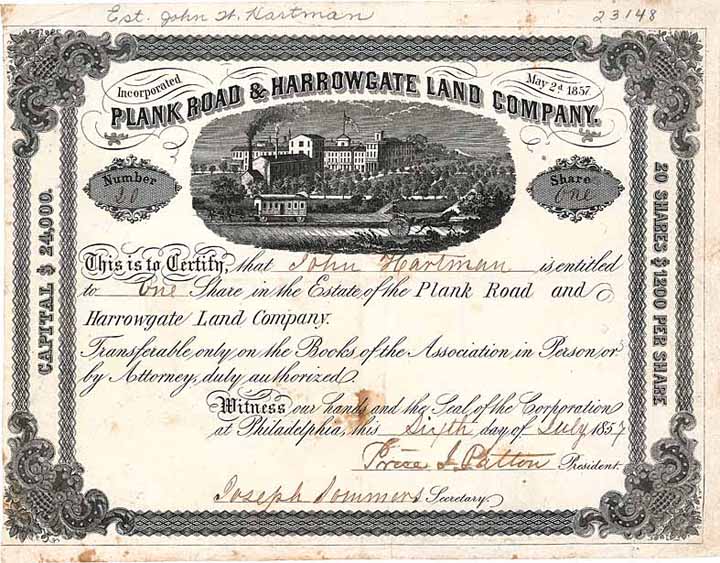 Est. John H. Hartman
23148
Incorporated
May 2d 1857
PLANK ROAD & HARROWGATE LAND COMPANY.
Number
20
Share
One
CAPITAL $ 24,000.
20 SHARES $ 1200 PER SHARE
This is to Certify, that John Hartman is entitled
to One Share in the Estate of the Plank Road and
Harrowgate Land Company.
Transferable only on the Books of the Association in Person or
by Attorney, duly authorized.
Witness our hands and the Seal of the Corporation
at Philadelphia, this Sixth day of July 1857
Price I. Patton President.
Joseph Sommers Secretary.